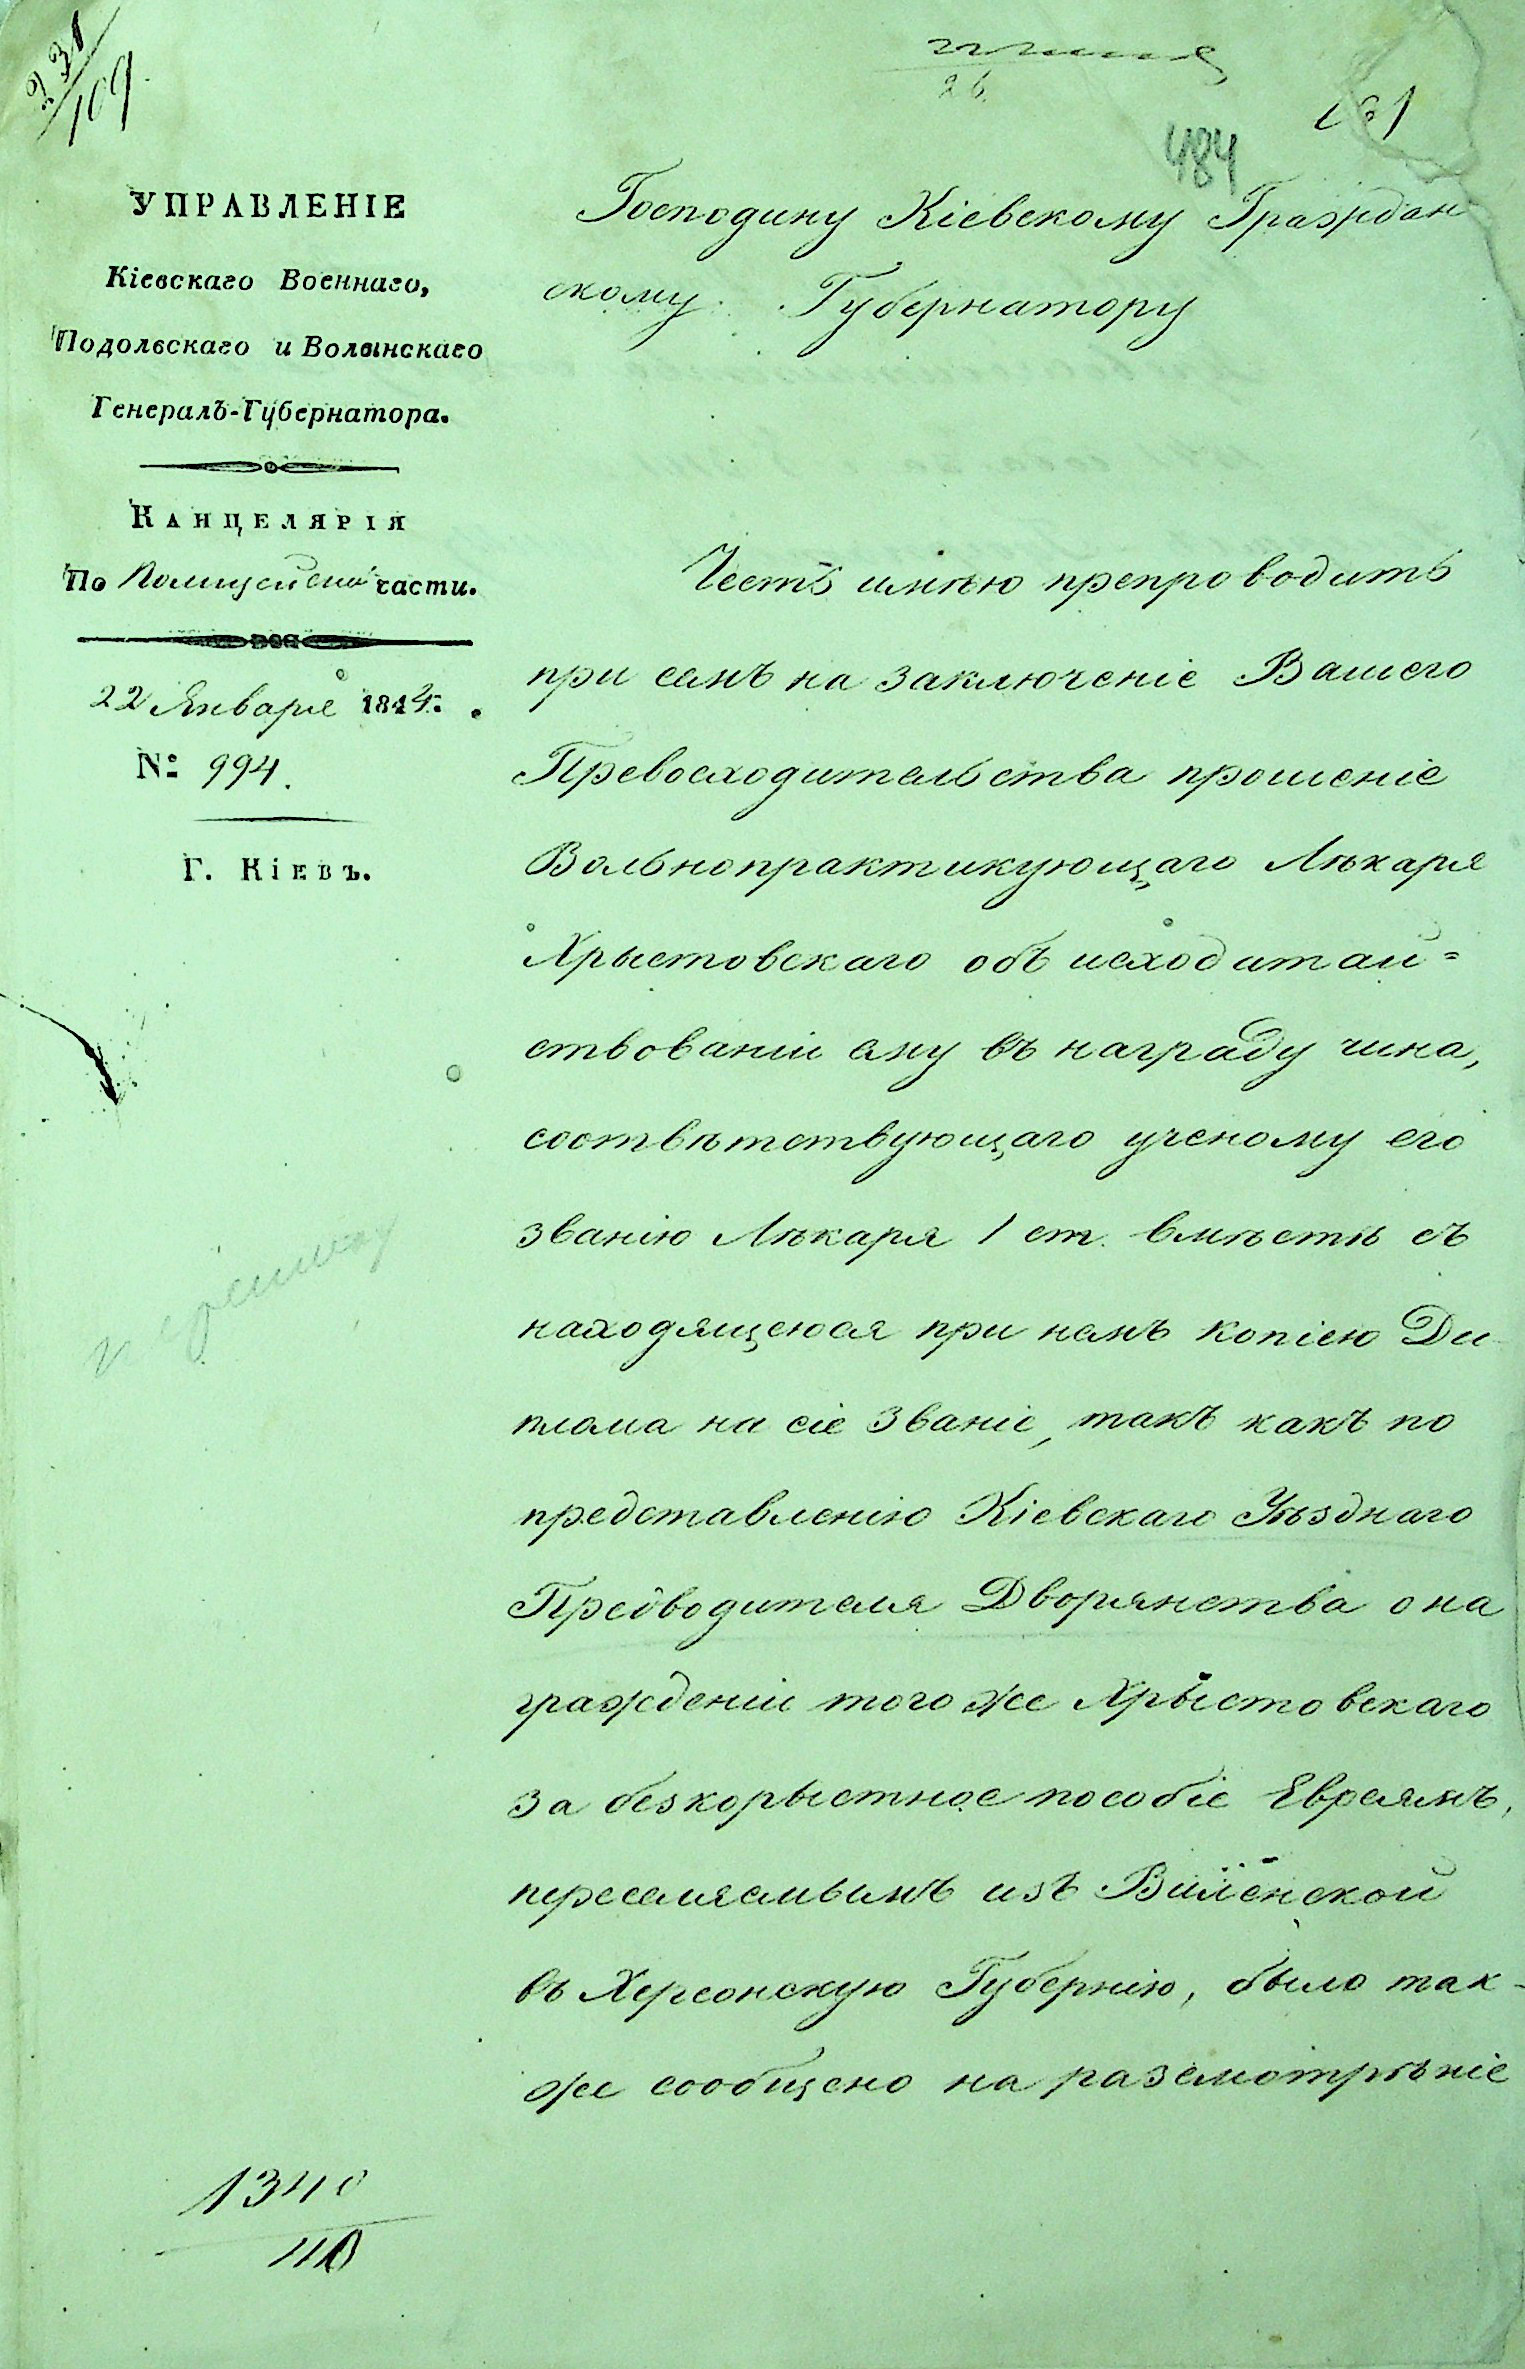 231
109
26.
484
УПРАВЛЕНІЕ
Кіевскаго Военнаго,
Подольскаго и Волынскаго
Генералъ-Губернатора.
Канцелярія
По Полицейской части.
22 Января 184
№ 994.
Г. Кіевъ.
Господину Кіевскому Граждан
скому Губернатору
Честь имѣю препроводить
при семъ на заключеніе Вашего
Превосходительства прошеніе
Вольнопрактикующаго Лѣкаря
Хрыстовскаго объ исходатай=
ствованіи ему въ награду чина,
соотвѣтствующаго ученому его
званію Лѣкаря 1 ст. вмѣстѣ съ
находящеюся при немъ копіею Ди
плома на сіе званіе, такъ какъ по
представленію Кіевскаго Уѣзднаго
Предводителя Дворянства о на
гражденіи того же Хрыстовскаго
за безкорыстное пособіе Евреямъ,
переселяемымъ изъ Виленской
въ Херсонскую Губернію, было так-
же сообщено на разсмотрѣніе
1340